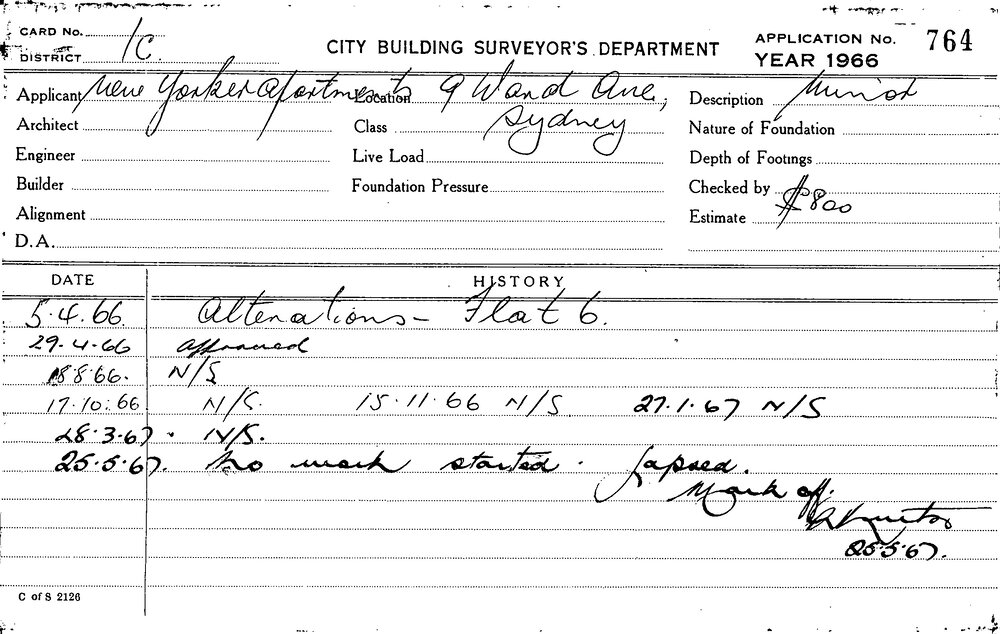 CARD No.
DISTRICT 1C.
CITY BUILDING SURVEYOR'S DEPARTMENT
APPLICATION No. 764
YEAR 1966
Applicant New Yorker Apartments Location 9 Ward Ave, Description Minor
Architect Class Sydney Nature of Foundation
Engineer Live Load Depth of Footings
Builder Foundation Pressure Checked by
Alignment Estimate $800
D.A.
DATE HISTORY
5.4.66. Alterations - Flat 6.
29.4.66 approved
18.8.66. N/S
17.10.66 N/S. 15.11.66 N/S 27.1.67 N/S
28.3.67. N/S.
25.5.67. No work started. Lapsed.
Mark off.
25.5.67.
C of S 2126